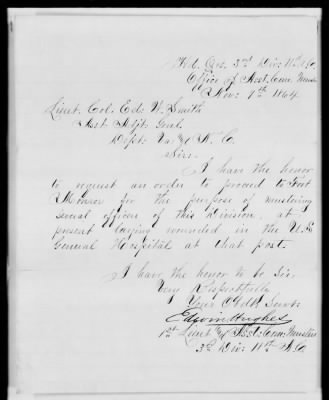 Hd. Qrs. 3rd Div: 18th A.C.
Office of Asst. Com. Muster
Nov: 7th 1864
Lieut. Col. Ed. W. Smith
Asst. Adjt. Genl.
Dept. Va. & N. C.
Sir:
I have the honor
to request an order to proceed to Fort
Monroe for the purpose of mustering
several officers of this Division, at
present laying wounded in the U.S.
General Hospital at that post.
I have the honor to be Sir,
Very Respectfully
Your Obdt Servt.
Edwin Hughes
1st Lieut & Asst: Com: Musters
3rd Div: 18th A.C.